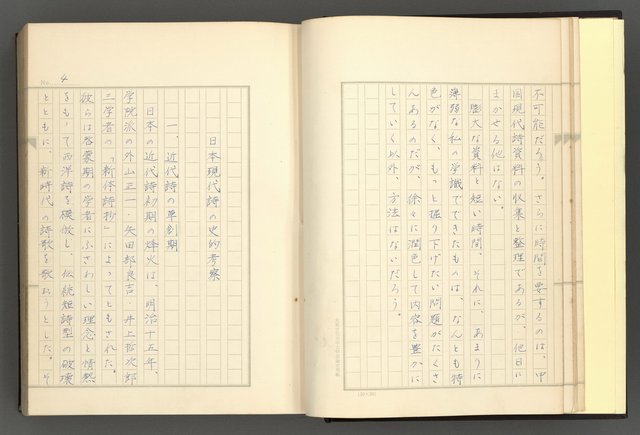 不可能だろう。さらに時間を要するのは、中
国現代詩資料の収集と整理であるが、他日に
まかせる他はない。
膨大な資料と短い時間、それに、あまりに
薄弱な私の学識でできたものは、なんとも特
色がなく、もっと掘り下げたい問題がたくさ
んあるのだが、徐々に潤色して内容を豊かに
していく以外、方法はないだろう。
(20×20)
No. 4
日本現代詩の史的考察
一、近代詩の草創期
日本の近代詩初期の烽火は、明治十五年、
学院派の外山正一・矢田部良吉・井上哲次郎
三学者の「新体詩抄」によってともされた。
彼らは啓蒙期の学者にふさわしい理念と情熱
をもって西洋詩を模倣し、伝統短詩型の破壊
とともに、新時代の詩歌を歌おうとした。そ